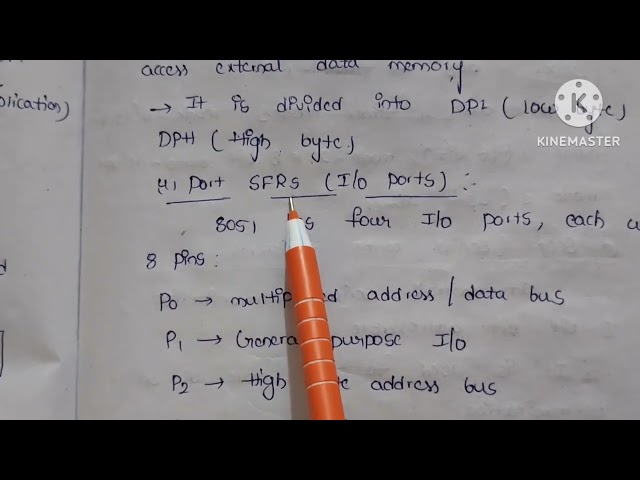 access external data memory.
→ It is divided into DPL (low byte)
DPH (High byte)
4) Port SFRs (I/o ports) :-
8051 four I/o ports, each
8 pins :
P0 → address / data bus
P1 → purpose I/o
P2 → High address bus
KINEMASTER